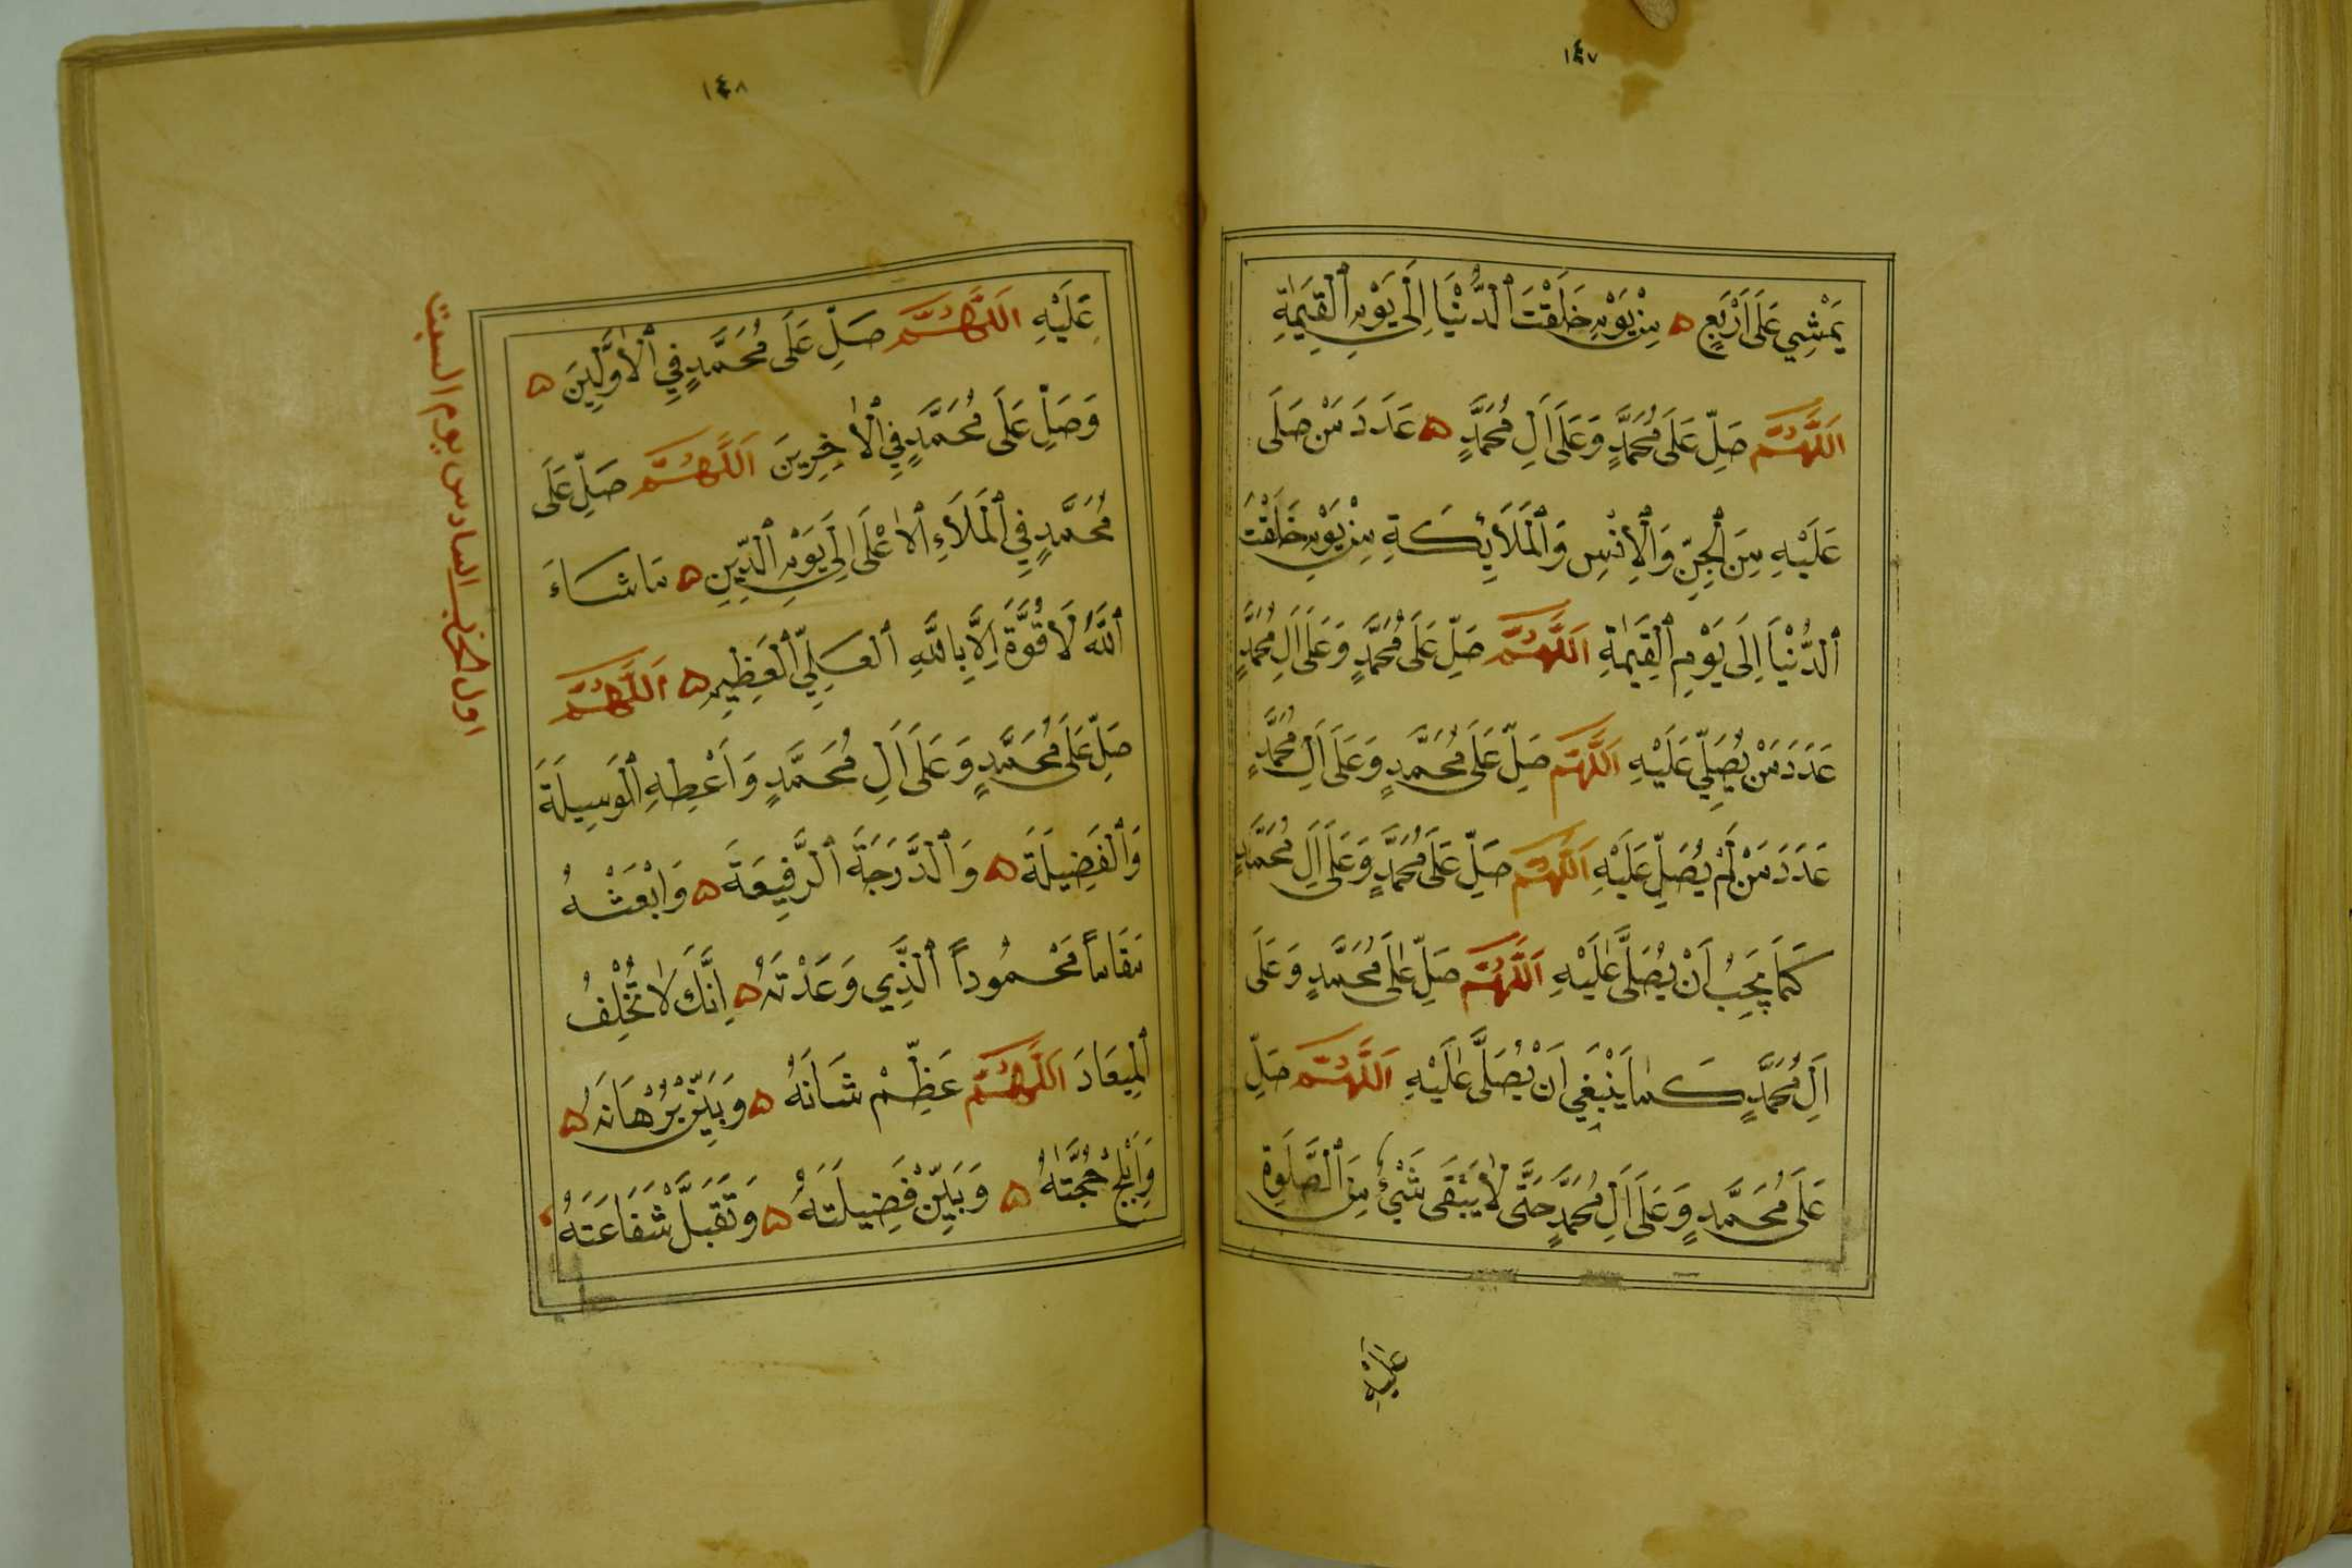 ١٤٧
يَمْشِي عَلَى اَرْبَعٍ ه مِنْ يَوْمِ خَلَقْتَ ٱلدُّنْيَا اِلَى يَوْمِ ٱلْقِيَمٰةِ
اَللَّهُمَّ صَلِّ عَلَى مُحَمَّدٍ وَعَلَى اَلِ مُحَمَّدٍ ه عَدَدَ مَنْ صَلَى
عَلَيْهِ مِنَ ٱلْجِنِّ وَٱلْاِنْسِ وَٱلْمَلَائِكَةِ مِنْ يَوْمِ خَلَقْتَ
ٱلدُّنْيَا اِلَى يَوْمِ ٱلْقِيَمٰةِ اَللَّهُمَّ صَلِّ عَلَى مُحَمَّدٍ وَعَلَى اَلِ مُحَمَّدٍ
عَدَدَ مَنْ يُصَلِّي عَلَيْهِ اَللَّهُمَّ صَلِّ عَلَى مُحَمَّدٍ وَعَلَى اَلِ مُحَمَّدٍ
عَدَدَ مَنْ لَمْ يُصَلِّ عَلَيْهِ اَللَّهُمَّ صَلِّ عَلَى مُحَمَّدٍ وَعَلَى اَلِ مُحَمَّدٍ
كَمَا يَجِبُ اَنْ يُصَلَّى عَلَيْهِ اَللَّهُمَّ صَلِّ عَلَى مُحَمَّدٍ وَعَلَى
اَلِ مُحَمَّدٍ كَمَا يَنْبَغِي اَنْ يُصَلَّى عَلَيْهِ اَللَّهُمَّ صَلِّ
عَلَى مُحَمَّدٍ وَعَلَى اَلِ مُحَمَّدٍ حَتَّى لَا يَبْقَى شَيْءٌ مِنَ ٱلصَّلَوةِ
عَلَيْهِ
١٤٨
عَلَيْهِ اَللَّهُمَّ صَلِّ عَلَى مُحَمَّدٍ فِي ٱلْاَوَّلِينَ ه
وَصَلِّ عَلَى مُحَمَّدٍ فِي ٱلْاٰخِرِينَ اَللَّهُمَّ صَلِّ عَلَى
مُحَمَّدٍ فِي ٱلْمَلَاءِ ٱلْاَعْلَى اِلَى يَوْمِ ٱلدِّينِ ه مَا شَاءَ
ٱللَّهُ لَا قُوَّةَ اِلَّا بِاللَّهِ ٱلْعَلِيِّ ٱلْعَظِيمِ ه اَللَّهُمَّ
صَلِّ عَلَى مُحَمَّدٍ وَعَلَى اَلِ مُحَمَّدٍ وَاَعْطِهِ ٱلْوَسِيلَةَ
وَٱلْفَضِيلَةَ ه وَٱلدَّرَجَةَ ٱلرَّفِيعَةَ ه وَابْعَثْهُ
مَقَامًا مَحْمُودًا ٱلَّذِي وَعَدْتَهُ ه اِنَّكَ لَا تُخْلِفُ
ٱلْمِيعَادَ اَللَّهُمَّ عَظِّمْ شَانَهُ ه وَبَيِّنْ بُرْهَانَهُ ه
وَاَبْلِجْ حُجَّتَهُ ه وَبَيِّنْ فَضِيلَتَهُ ه وَتَقَبَّلْ شَفَاعَتَهُ
اول الحزب السادس يوم السبت